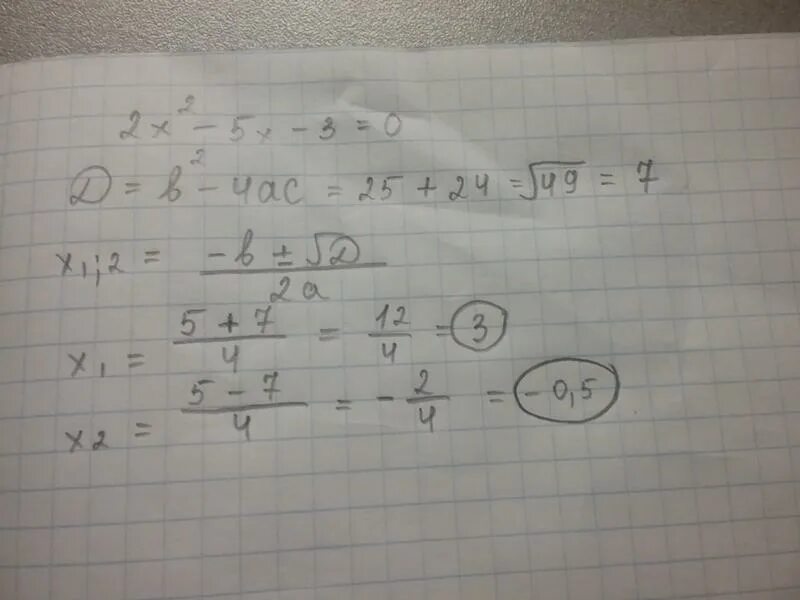 2x² - 5x - 3 = 0
D = b² - 4ac = 25 + 24 = √49 = 7
x₁;₂ = (-b ± √D) / 2a
x₁ = (5 + 7) / 4 = 12/4 = 3
x₂ = (5 - 7) / 4 = - 2/4 = - 0,5